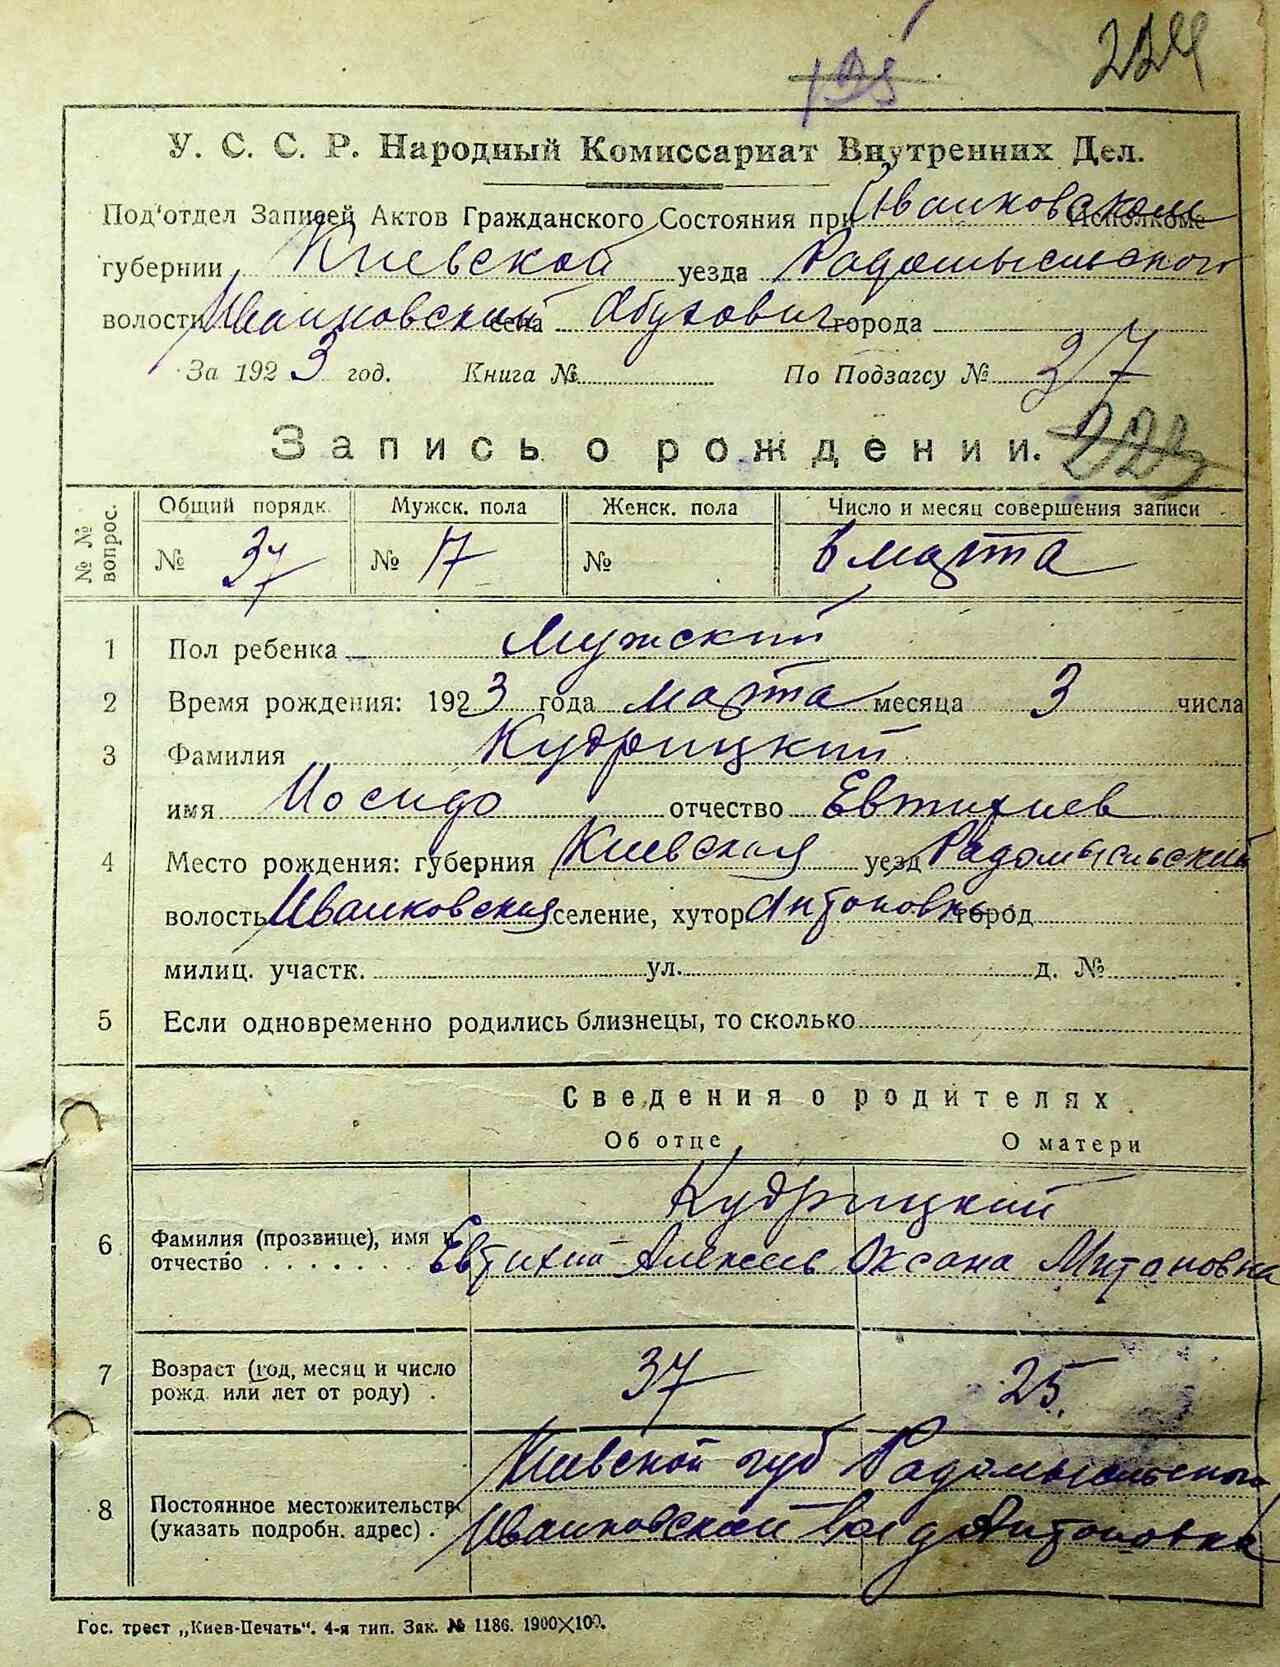 224
195
У. С. С. Р. Народный Комиссариат Внутренних Дел.
Под'отдел Записей Актов Гражданского Состояния при Иванковском Исполкоме
губернии Киевской уезда Радомысльского
волости Иванковской села Обухович города
За 1923 год. Книга № По Подзагсу № 37
Запись о рождении. 223
№ № вопрос. Общий порядк. Мужск. пола Женск. пола Число и месяц совершения записи
№ 37 № 17 № 6 марта
1 Пол ребенка Мужский
2 Время рождения: 1923 года марта месяца 3 числа
3 Фамилия Кудрицкий
имя Иосидо отчество Евтихиев
4 Место рождения: губерния Киевская уезд Радомысльский
волость Иванковская селение, хутор Антоновка город
милиц. участк. ул. д. №
5 Если одновременно родились близнецы, то сколько
Сведения о родителях.
Об отце О матери
Кудрицкий
6 Фамилия (прозвище), имя и отчество Евтихий Алексеев Оксана Митоновна
7 Возраст (год, месяц и число рожд. или лет от роду) 37 25
Киевской губ Радомысльского
8 Постоянное местожительств (указать подробн. адрес) Иванковской вол д Антоновка
Гос. трест „Киев-Печать“. 4-я тип. Зак. № 1186. 1900×100.